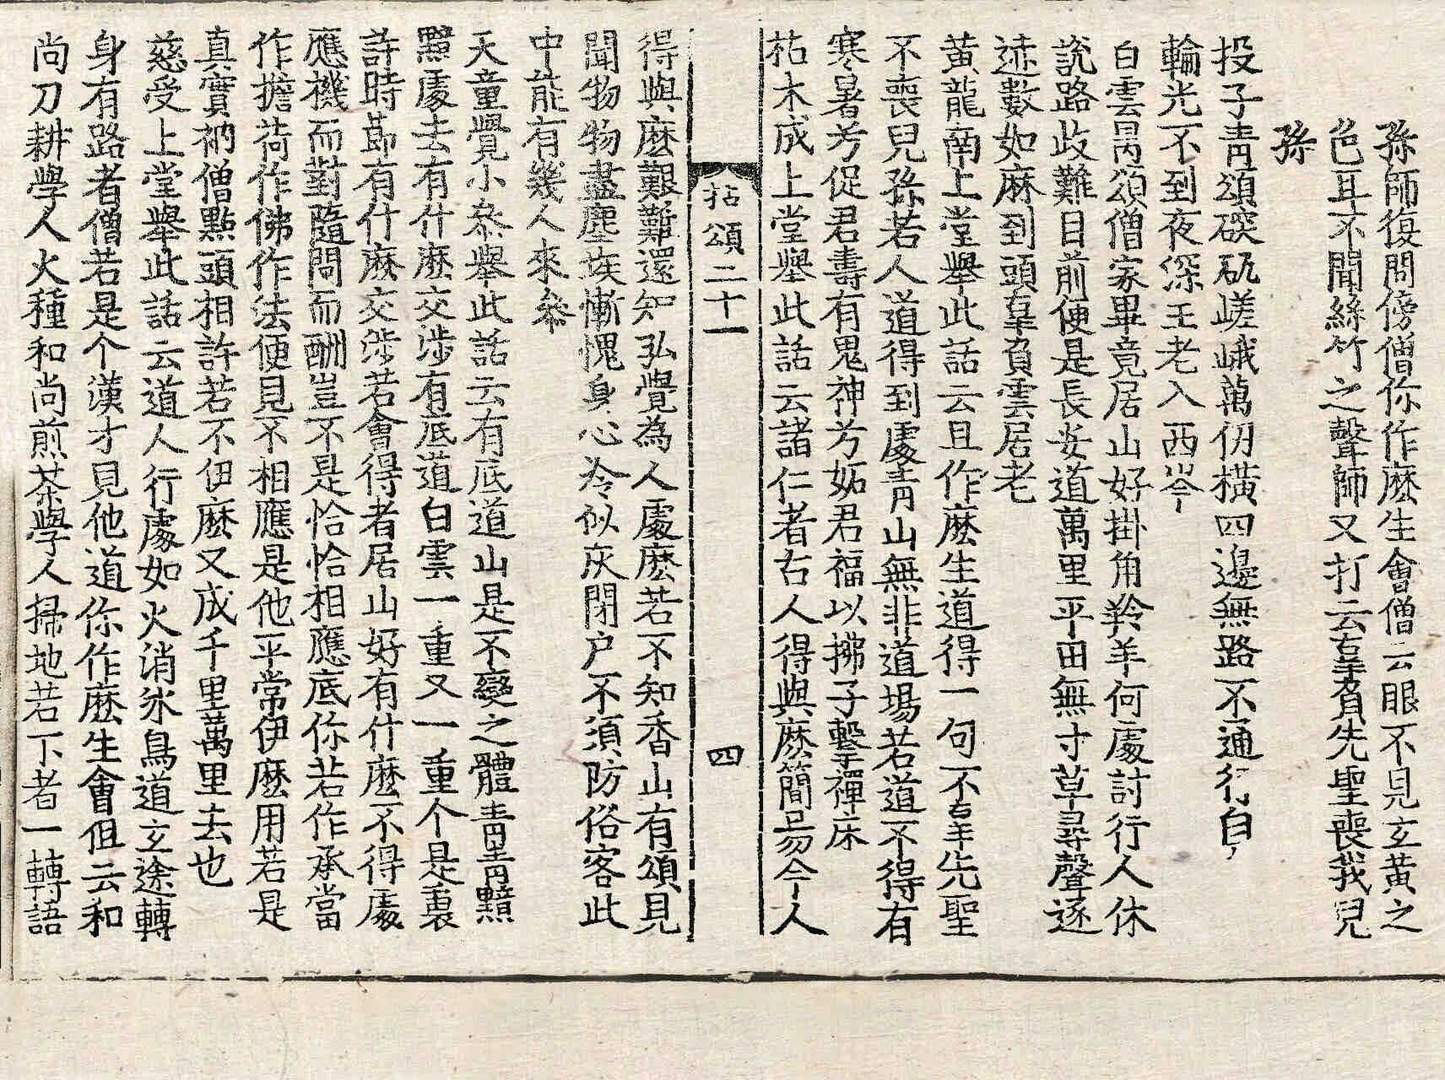 孫師復問傍僧你作麽生會僧云眼不見玄黃之
色耳不聞絲竹之聲師又打云辜負先聖喪我兒
孫
投子靑頌硤砥嵯峨萬仞橫四邊無路不通行白
輪光不到夜深王老入西岑
白雲昺頌僧家畢竟居山好掛角羚羊何處討行人休
說路歧難目前便是長安道萬里平田無寸草尋聲逐
迹數如麻到頭辜負雲居老
黃龍南上堂擧此話云且作麽生道得一句不辜先聖
不喪兒孫若人道得到處靑山無非道場若道不得有
寒暑兮促君壽有鬼神兮妬君福以拂子擊禪床
枯木成上堂擧此話云諸仁者古人得與麽簡易今人
拈頌二十一
四
得與麽艱難還知弘覺為人處麽若不知香山有頌見
聞物物盡塵埃慚愧身心冷似灰閉户不須防俗客此
中能有幾人來叅
天童覺小叅擧此話云有底道山是不變之體靑靑黯
黯處去有什麽交涉有底道白雲一重又一重个是裏
許時節有什麽交涉若會得者居山好有什麽不得處
應機而對隨問而酬豈不是恰恰相應底你若作承當
作擔荷作佛作法便見不相應是他平常伊麽用若是
真實衲僧點頭相許若不伊麽又成千里萬里去也
慈受上堂擧此話云道人行處如火消氷鳥道玄途轉
身有路者僧若是个漢才見他道你作麽生會但云和
尚刀耕學人火種和尚煎茶學人掃地若下者一轉語